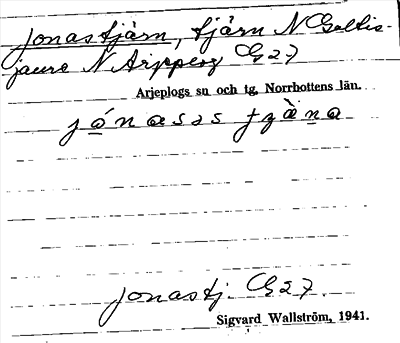 Jonastjärn, tjärn N Galtis-
jaure N Arjeplog G27
Arjeplogs sn och tg, Norrbottens län.
Jonastj. G27.
Sigvard Wallström, 1941.